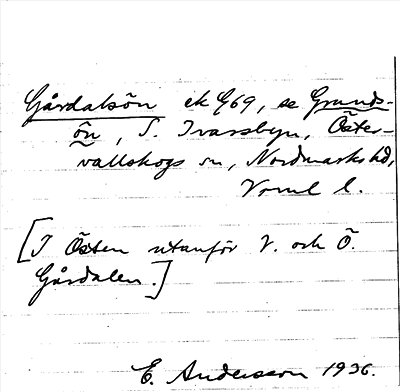 Gårdalsön ek 969, se Grunds-
ön, S. Ivarsbyn, Öster-
vallskogs sn, Nordmarks hd,
Vrml l.
[I Östen utanför V. och Ö.
Gårdalen.]
E. Andersson 1936.